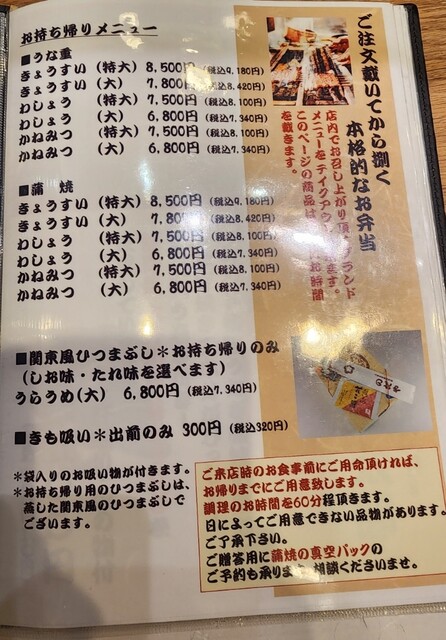 お持ち帰りメニュー
■うな重
きょうすい (特大) 8,500円 (税込9,180円)
きょうすい (大) 7,800円 (税込8,420円)
わしょう (特大) 7,500円 (税込8,100円)
わしょう (大) 6,800円 (税込7,340円)
かねみつ (特大) 7,500円 (税込8,100円)
かねみつ (大) 6,800円 (税込7,340円)
■蒲 焼
きょうすい (特大) 8,500円 (税込9,180円)
きょうすい (大) 7,800円 (税込8,420円)
わしょう (特大) 7,500円 (税込8,100円)
わしょう (大) 6,800円 (税込7,340円)
かねみつ (特大) 7,500円 (税込8,100円)
かねみつ (大) 6,800円 (税込7,340円)
■関東風ひつまぶし＊お持ち帰りのみ
(しお味・たれ味を選べます)
うらうめ(大) 6,800円 (税込7,340円)
■きも吸い＊出前のみ 300円 (税込320円)
＊袋入りのお吸い物が付きます。
＊お持ち帰り用のひつまぶしは、
蒸した関東風のひつまぶしで
ございます。
ご注文戴いてから捌く
本格的なお弁当
店内でお召し上がり頂くグランド
メニューをテイクアウト ます。
このページの商品は お時間
を戴きます。
ご来店時のお食事前にご用命頂ければ、
お帰りまでにご用意致します。
調理のお時間を60分程頂きます。
日によってご用意できない品物があります。
ご了承下さい。
ご贈答用に蒲焼の真空パックの
ご予約も承ります 相談くださいませ。